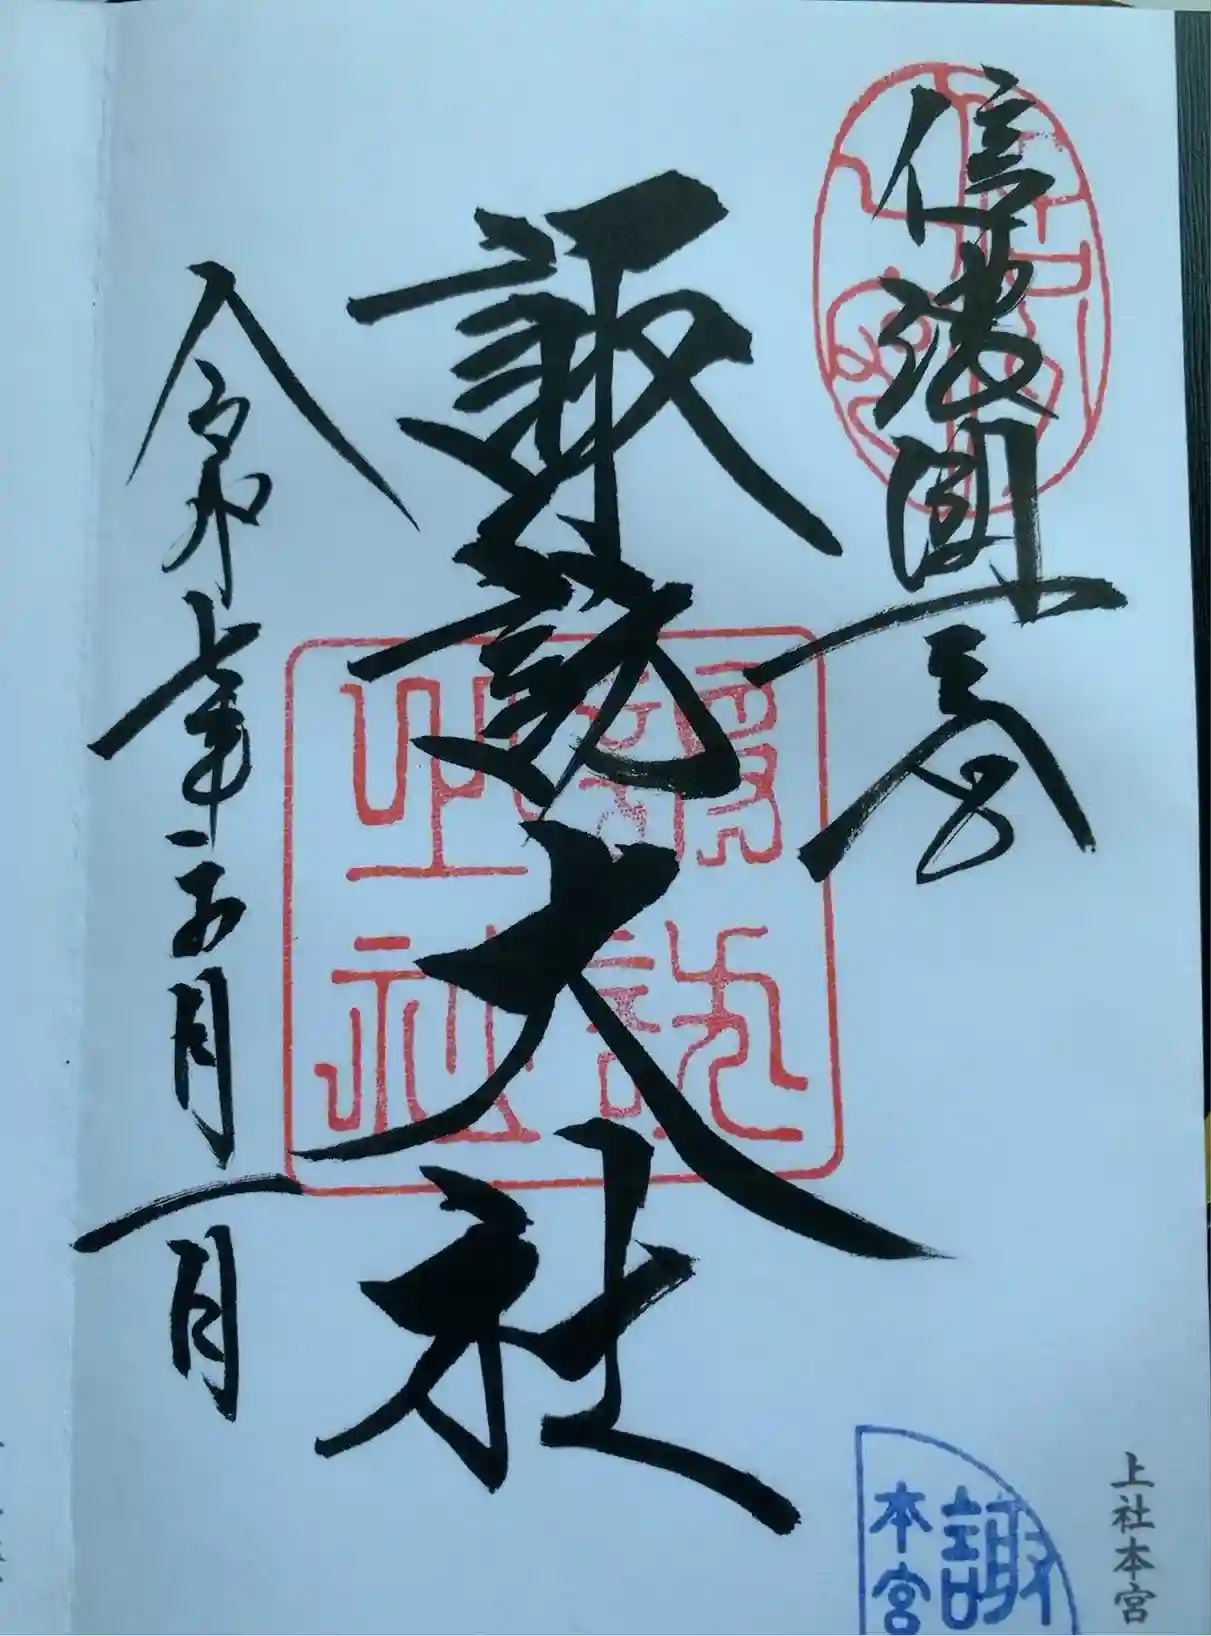 信濃國一之宮
諏訪大社
令和七年五月一日
諏訪
之社
上社本宮
諏
本宮